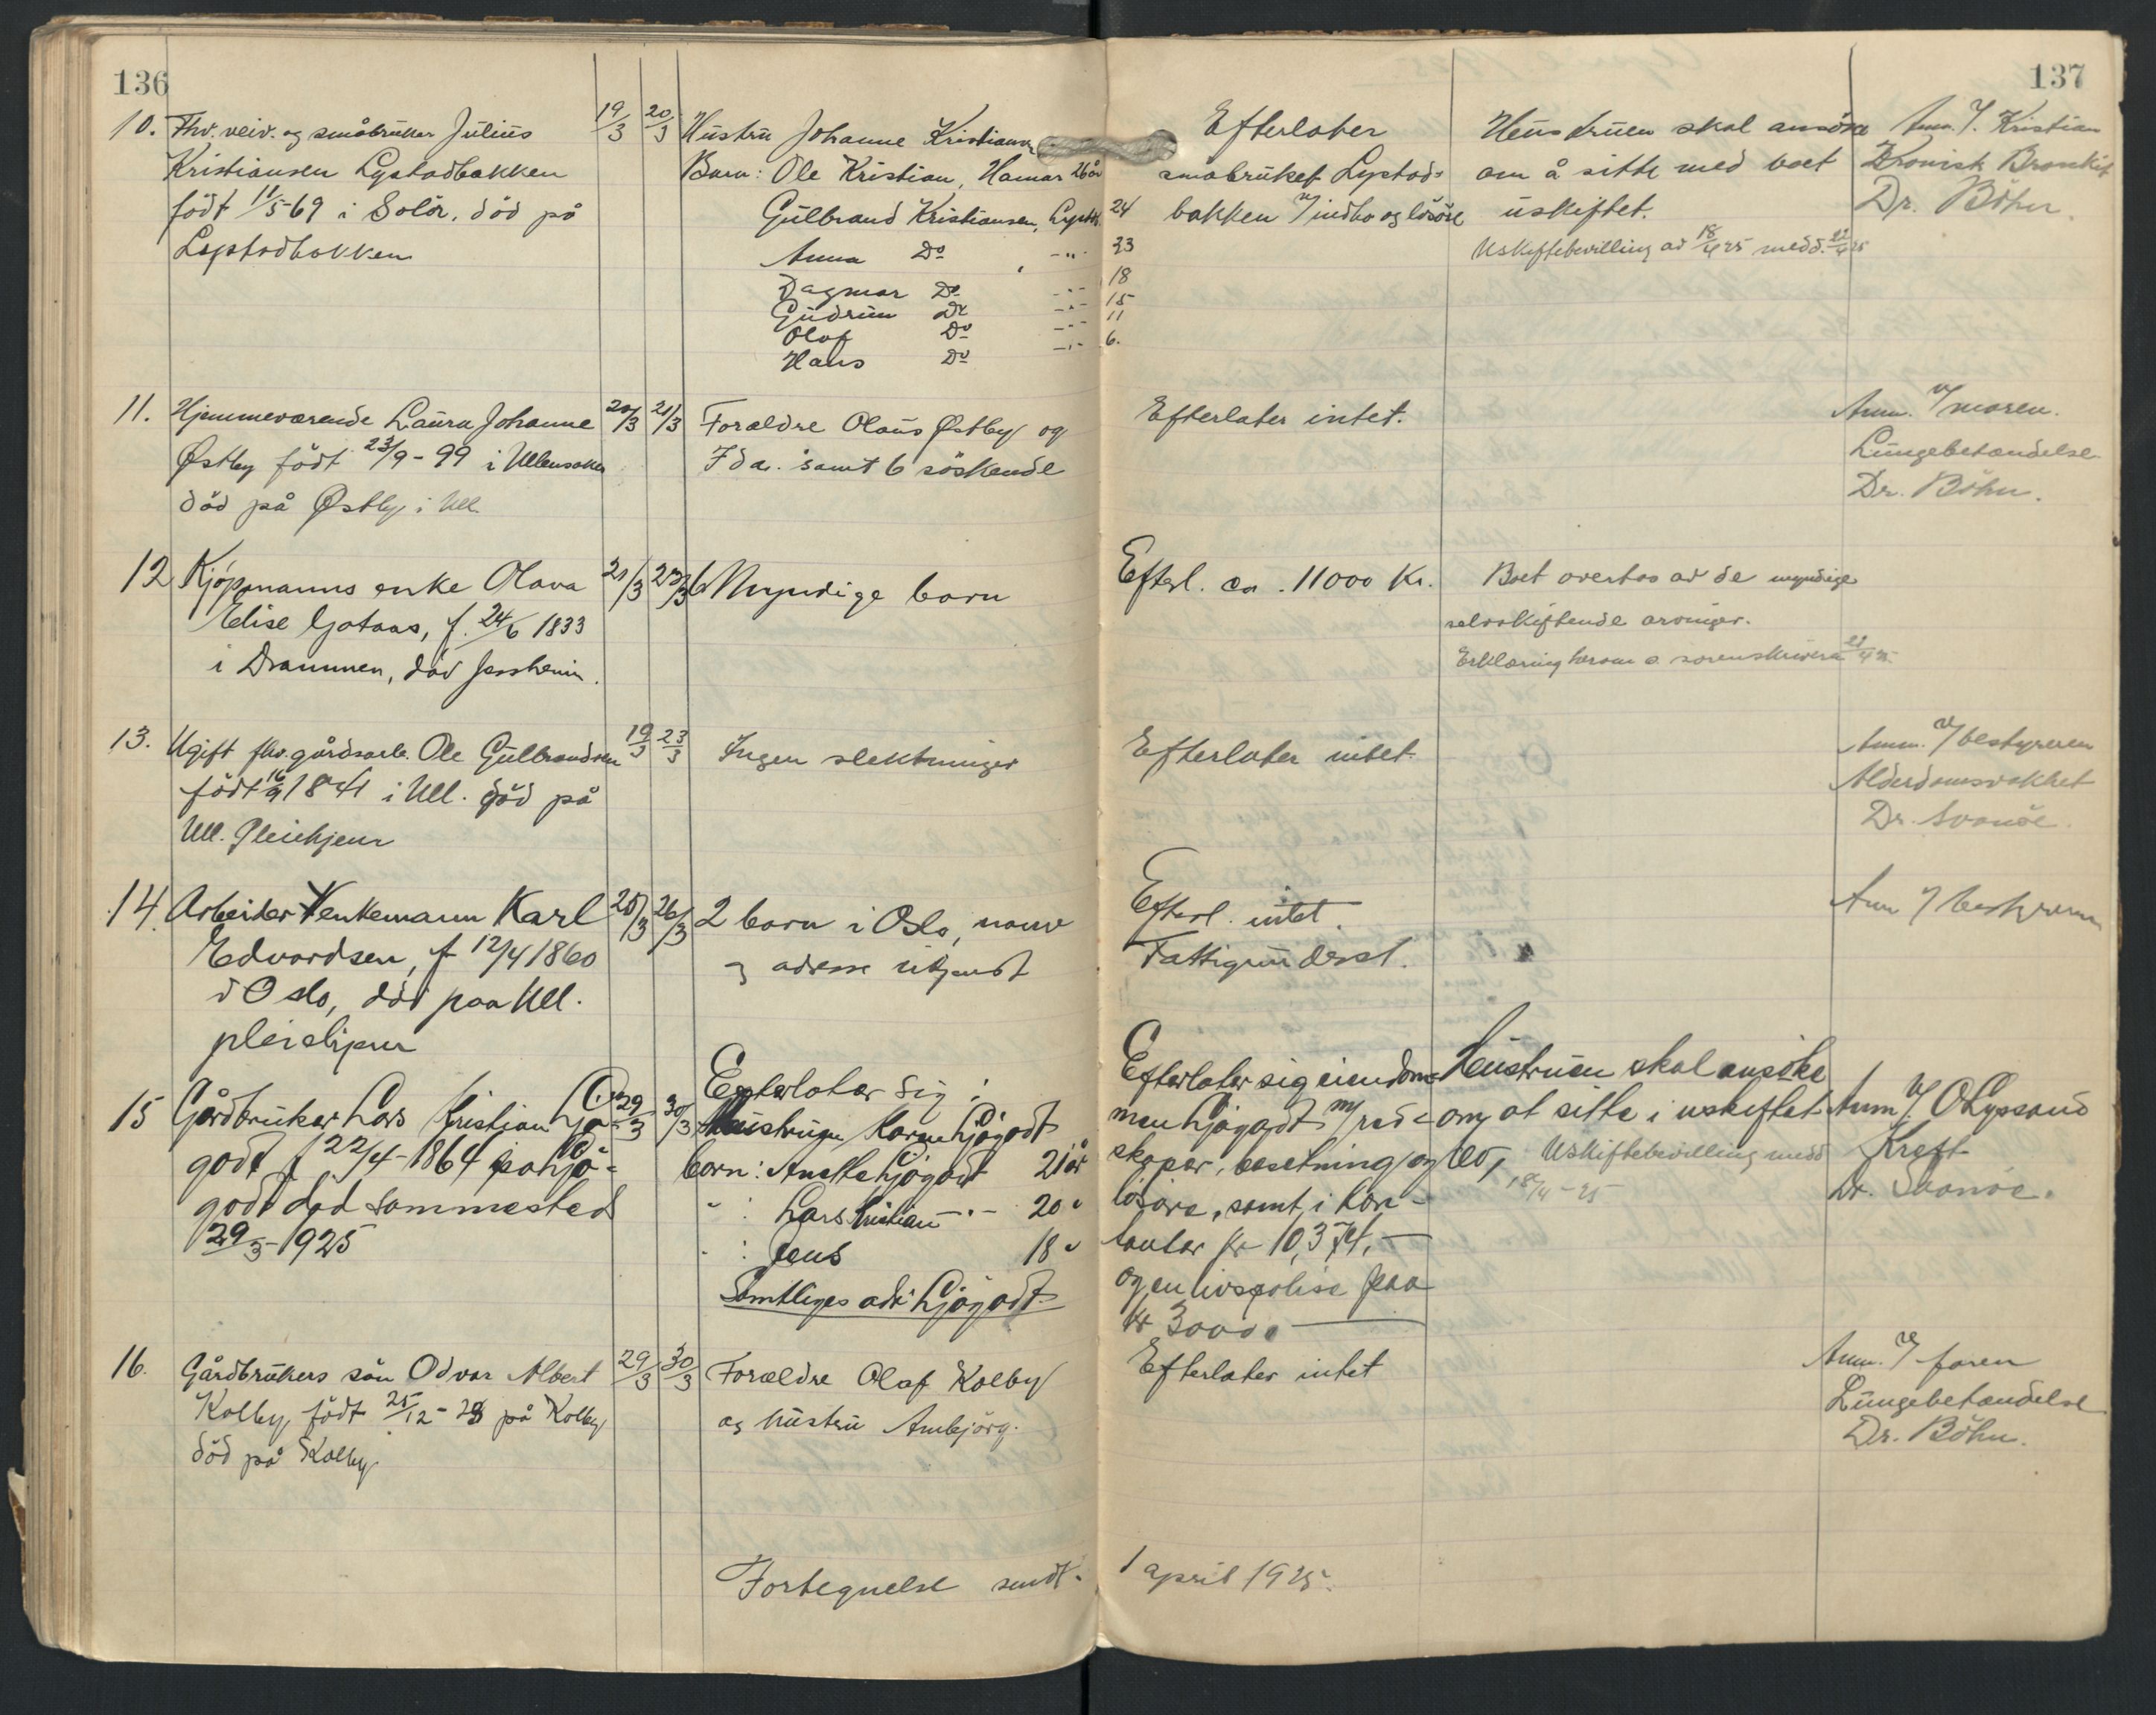 136
10. Fhv. veiv. og småbruker Julius
Kristiansen Lystadbakken
född 11/5 69 i Solör, död på
Lystadbakken
19/3
20/3
Hustru Johanne Kristiansen
Barn: Ole Kristian, Hamar 26 år
Gulbrand Kristiansen, Lystb. 24
Anna Do -"- 23
Dagmar Do -"- 18
Gudrun Do -"- 15
Olaf Do -"- 11
Hans Do -"- 6.
11. Hjemmeværende Laura Johanne
Østby född 23/9 - 99 i Ullensaker
död på Østby i Ull
20/3
21/3
Forældre Olaus Østby og
Ida. samt 6 söskende
12 Kjöpmanns enke Olava
Elise Gotaas, f. 24/6 1833
i Drammen, död Jessheim.
21/3
23/3
6 Myndige barn
13. Ugift fhv. gårdsarb. Ole Gulbrandsen
född 16/9 1841 i Ull. död på
Ull. Pleiehjem
19/3
23/3
Ingen slektninger
14. Arbeider Venkemann Karl
Edvardsen, f 12/4 1860
i Oslo, död paa Ull.
pleiehjem
25/3
26/3
2 barn i Oslo, navn
og adresse ukjendt
15 Gårdbruker Lars Kristian Ljö-
godt f 22/4 - 1864 på Ljö-
godt död sammesteds
29/3 - 1925
29/3
30/3
Efterlater sig ;
Hustruen Karen Ljögodt
barn: Anette Ljögodt 21 år
" : Lars Kristian -"- 20 "
" : Jens 18 "
Samtliges adr Ljögodt.
16. Gårdbrukers sön Odvar Albert
Kolby, född 25/12 - 23 på Kolby
död på Kolby.
29/3
30/3
Forældre Olaf Kolby
og hustru Ambjörg.
Fortegnelse sendt
137
Efterlater
småbruket Lystad-
bakken m/ indbo og lösöre
Hustruen skal ansöke
om å sitte med boet
uskiftet.
Uskiftebevilling av 18/4 25 medd. 22/4 25
Anm. v/ Kristian
Kronisk Bronkit
Dr. Böhn.
Efterlater intet.
Anm. v/ moren.
Lungebetændelse
Dr. Böhn.
Efterl. ca. 11000 Kr.
Boet overtas av de myndige
selvskiftende arvinger.
Erklæring herom
Efterlater intet.
Anm. v/ bestyreren
Alderdomsvakhet
Dr. Svanöe.
Efterl. intet.
Fattigunderst.
Anm v/ bestyreren
Efterlater sig eiendom-
men Ljögodt m/ red-
skaper, besetning og
lösöre, samt i kon-
tanter kr 10,374.—
og en livspolise paa
kr 3000.—
Hustruen skal ansöke
om at sitte i uskiftet
bo, Uskiftebevilling medd
18/4 - 25
Anm v/ O Lyssand
Kreft
Dr. Svanöe.
Efterlater intet
Anm. v/ faren
Lungebetændelse
Dr. Böhn.
1 april 1925.